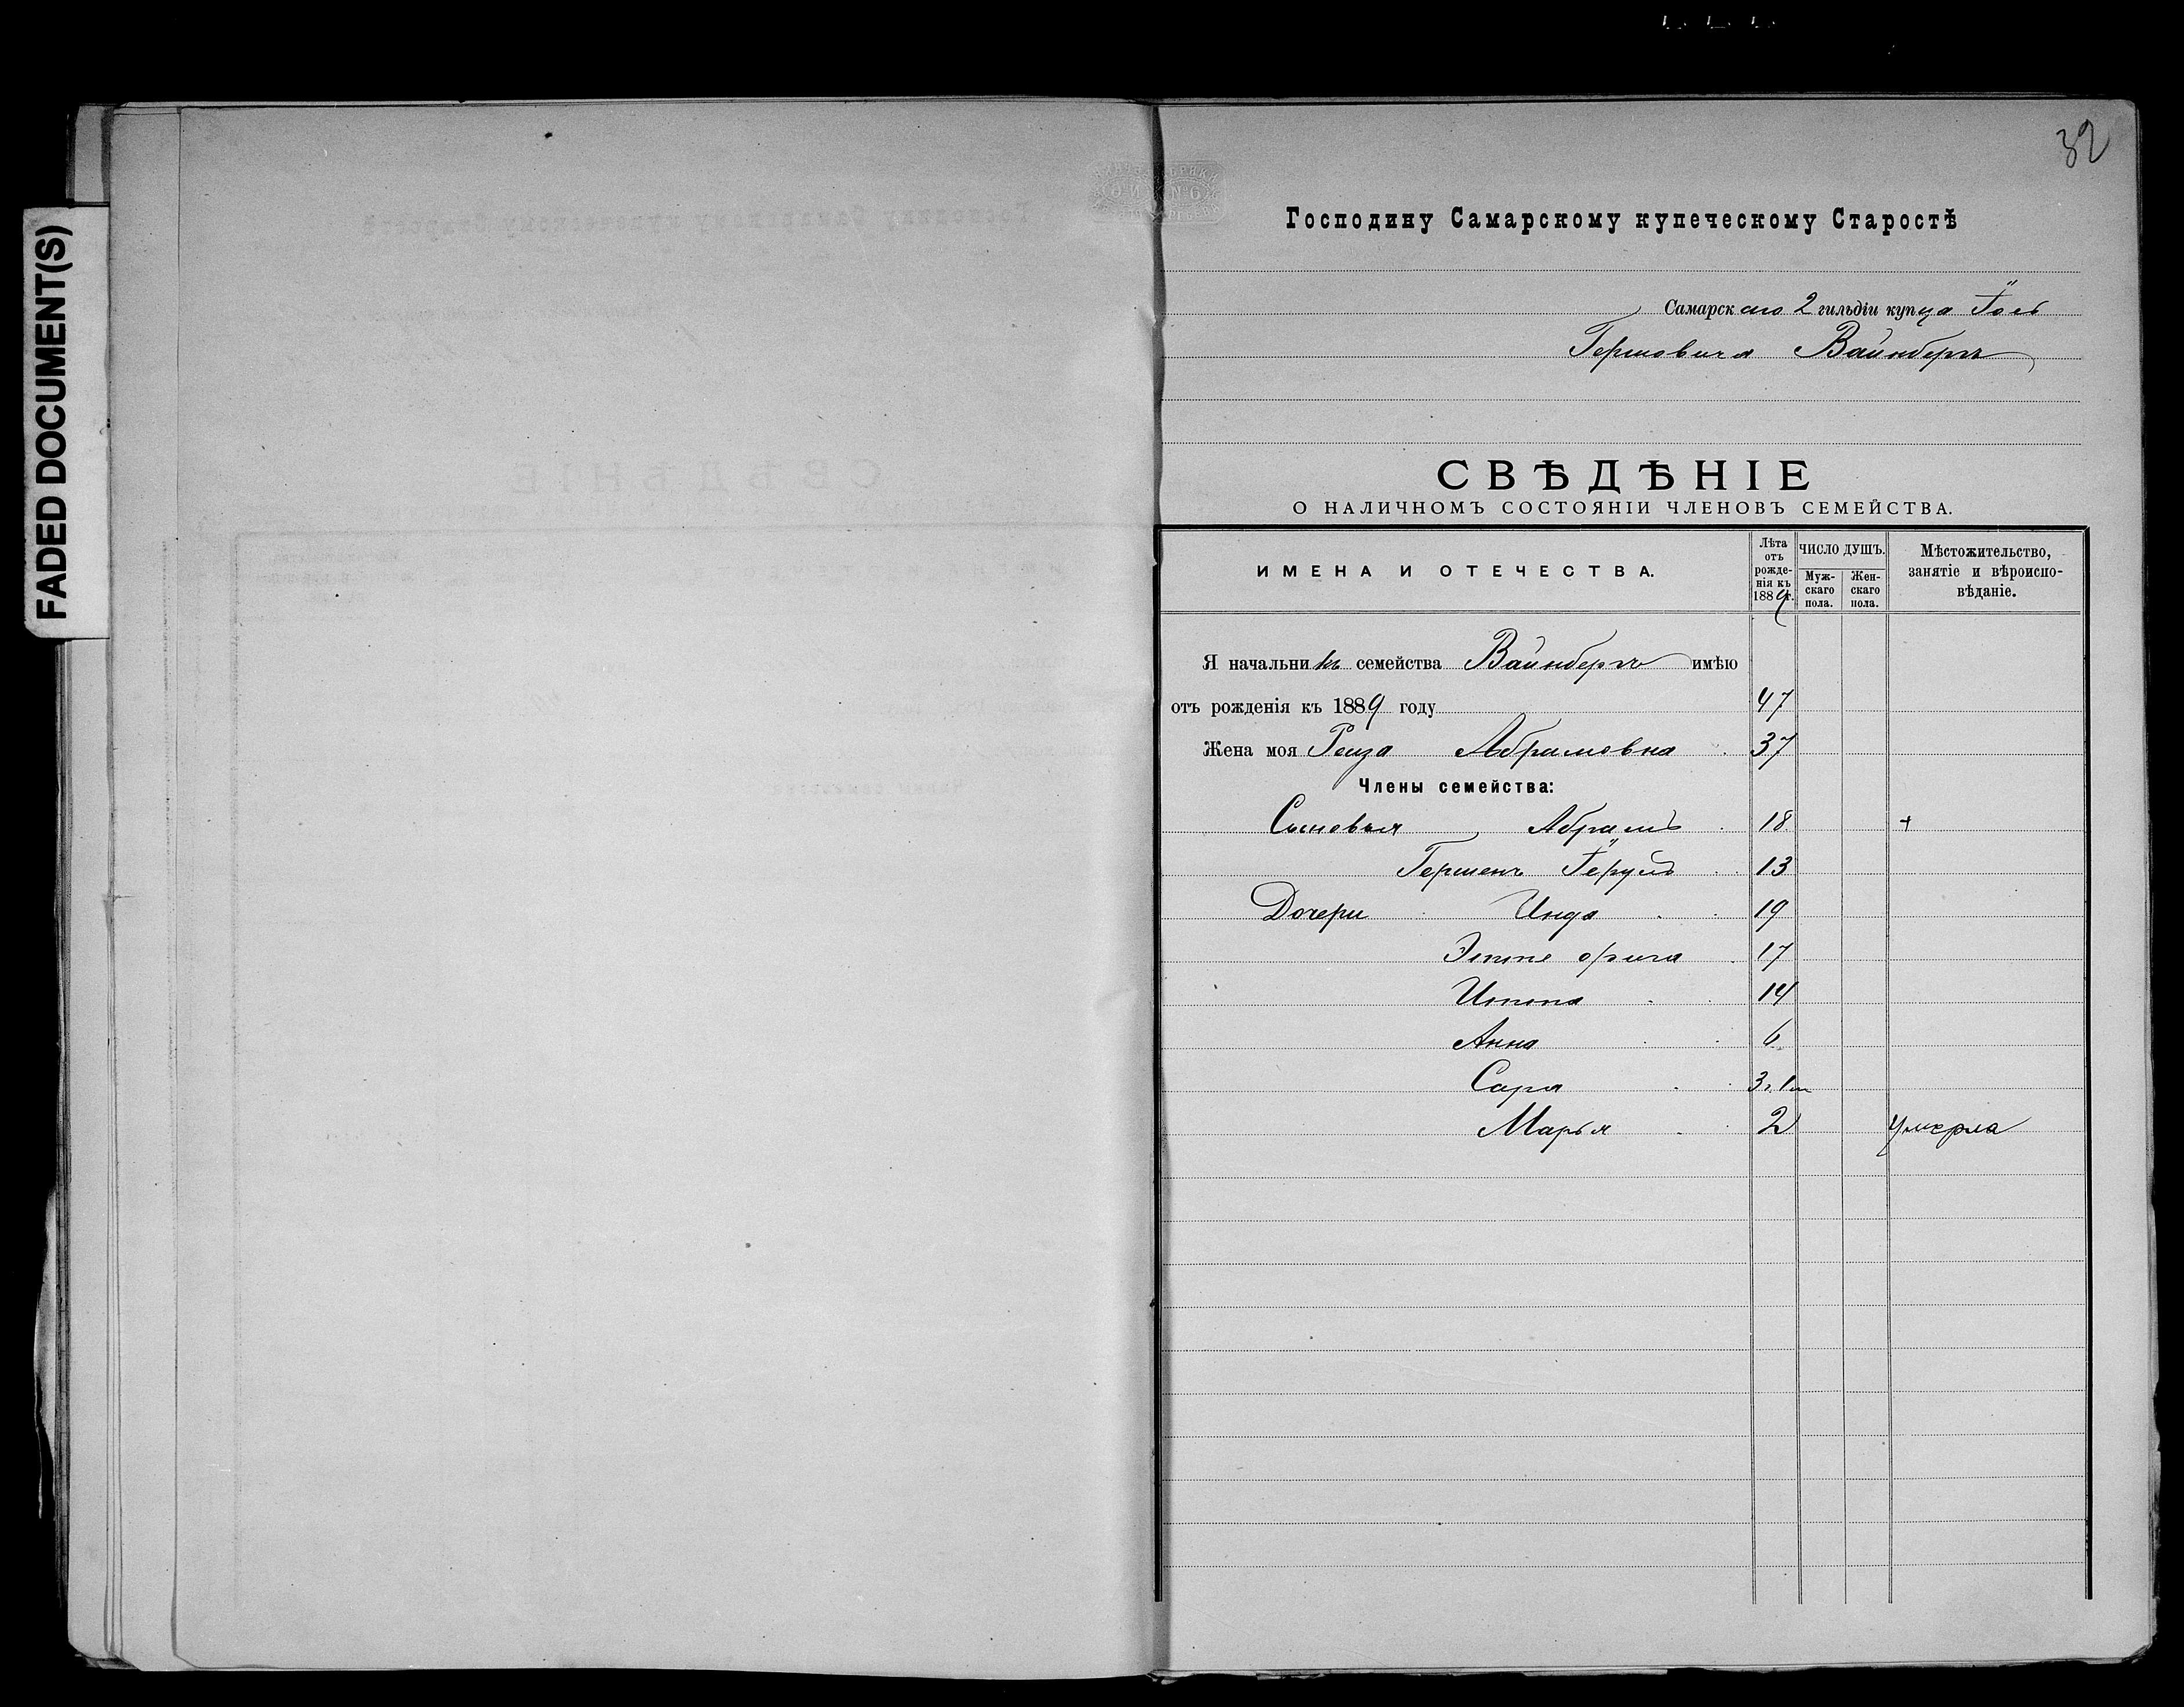 FADED DOCUMENT(S)
32
Господину Самарскому купеческому Старостѣ
Самарскаго 2 гильдіи купца Іось
Гершовича Вайнбергъ
СВѢДѢНІЕ
О НАЛИЧНОМЪ СОСТОЯНІИ ЧЛЕНОВЪ СЕМЕЙСТВА.
ИМЕНА И ОТЕЧЕСТВА.
Лѣта отъ рожде-нія къ 1889 г.
ЧИСЛО ДУШЪ.
Муж-скаго пола.
Жен-скаго пола.
Мѣстожительство, занятіе и вѣроиспо-вѣданіе.
Я начальникъ семейства Вайнбергъ имѣю
отъ рожденія къ 1889 году 47
Жена моя Реиза Абрамовна 37
Члены семейства:
Сыновья Абрамъ 18 +
Гершенъ 13
Дочери Инда 19
Этте 17
Итта 14
Анна 6
Сара 3
Марья 2 умерла